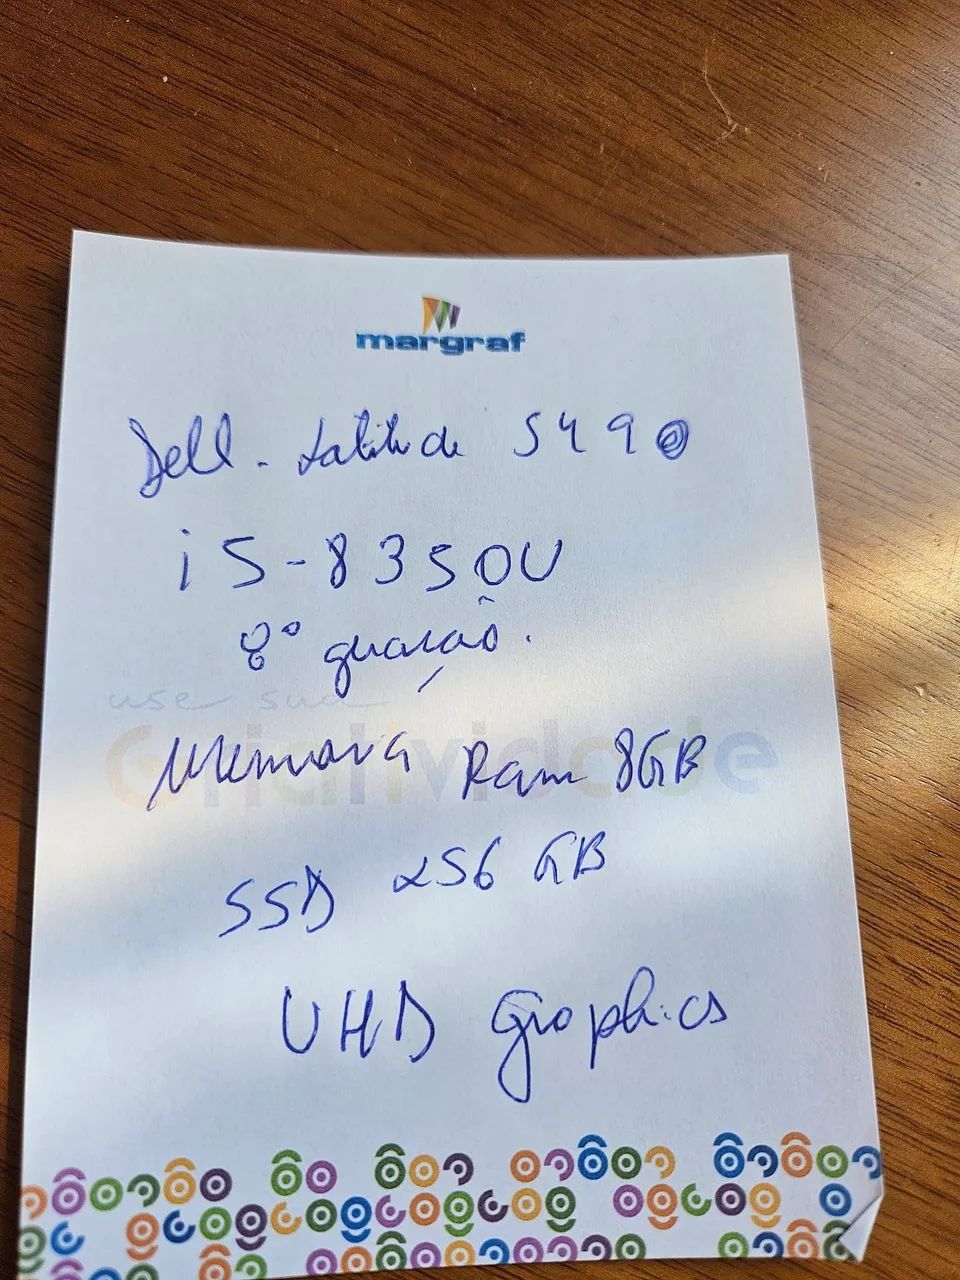 margraf
Dell - Latitude 5490
i5-8350U
8º geração.
use sua
Criatividade
Memória Ram 8GB
SSD 256 GB
UHD Graphics